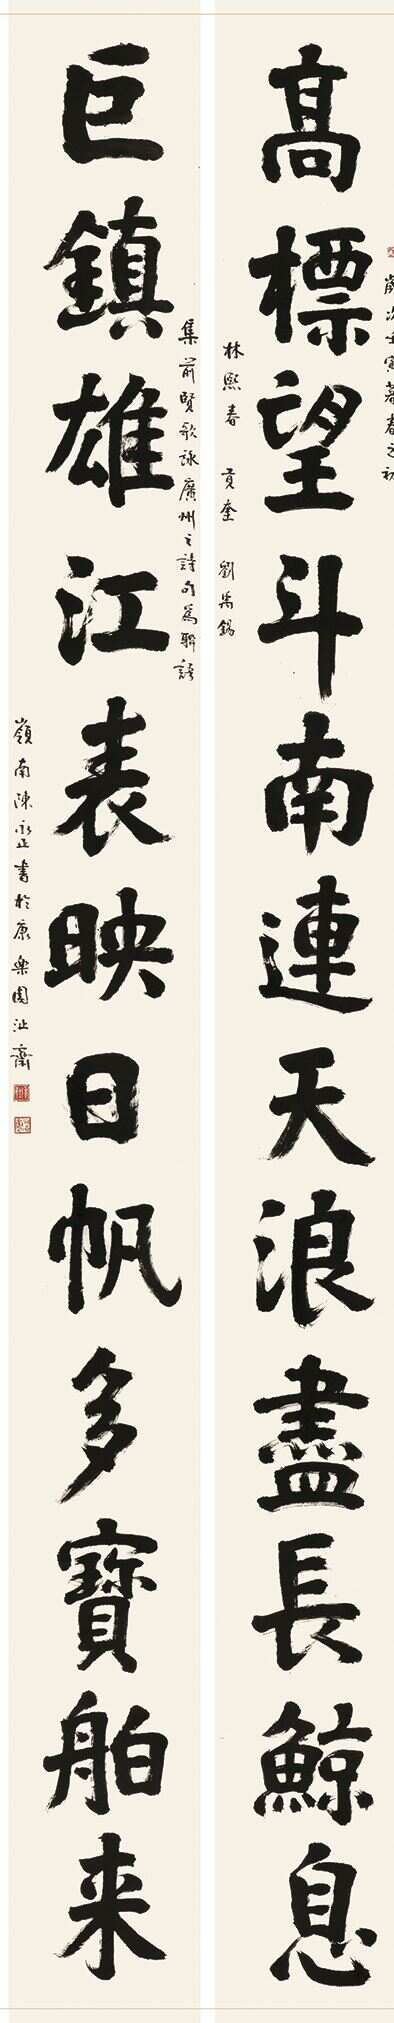 歲次壬寅暮春之初
高標望斗南連天浪盡長鯨息
林熙春 貢奎 劉禹錫
集前賢歌詠廣州之詩句為聯語
巨鎮雄江表映日帆多寶舶来
嶺南陳永正書於康樂園沚齋